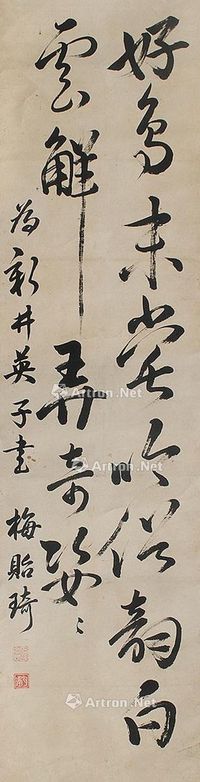 好鳥未嘗吟俗韻白
雲解弄奇姿
為新井英子書 梅貽琦
Artron.Net
Artron.Net
Artron.Net
Artron.Net